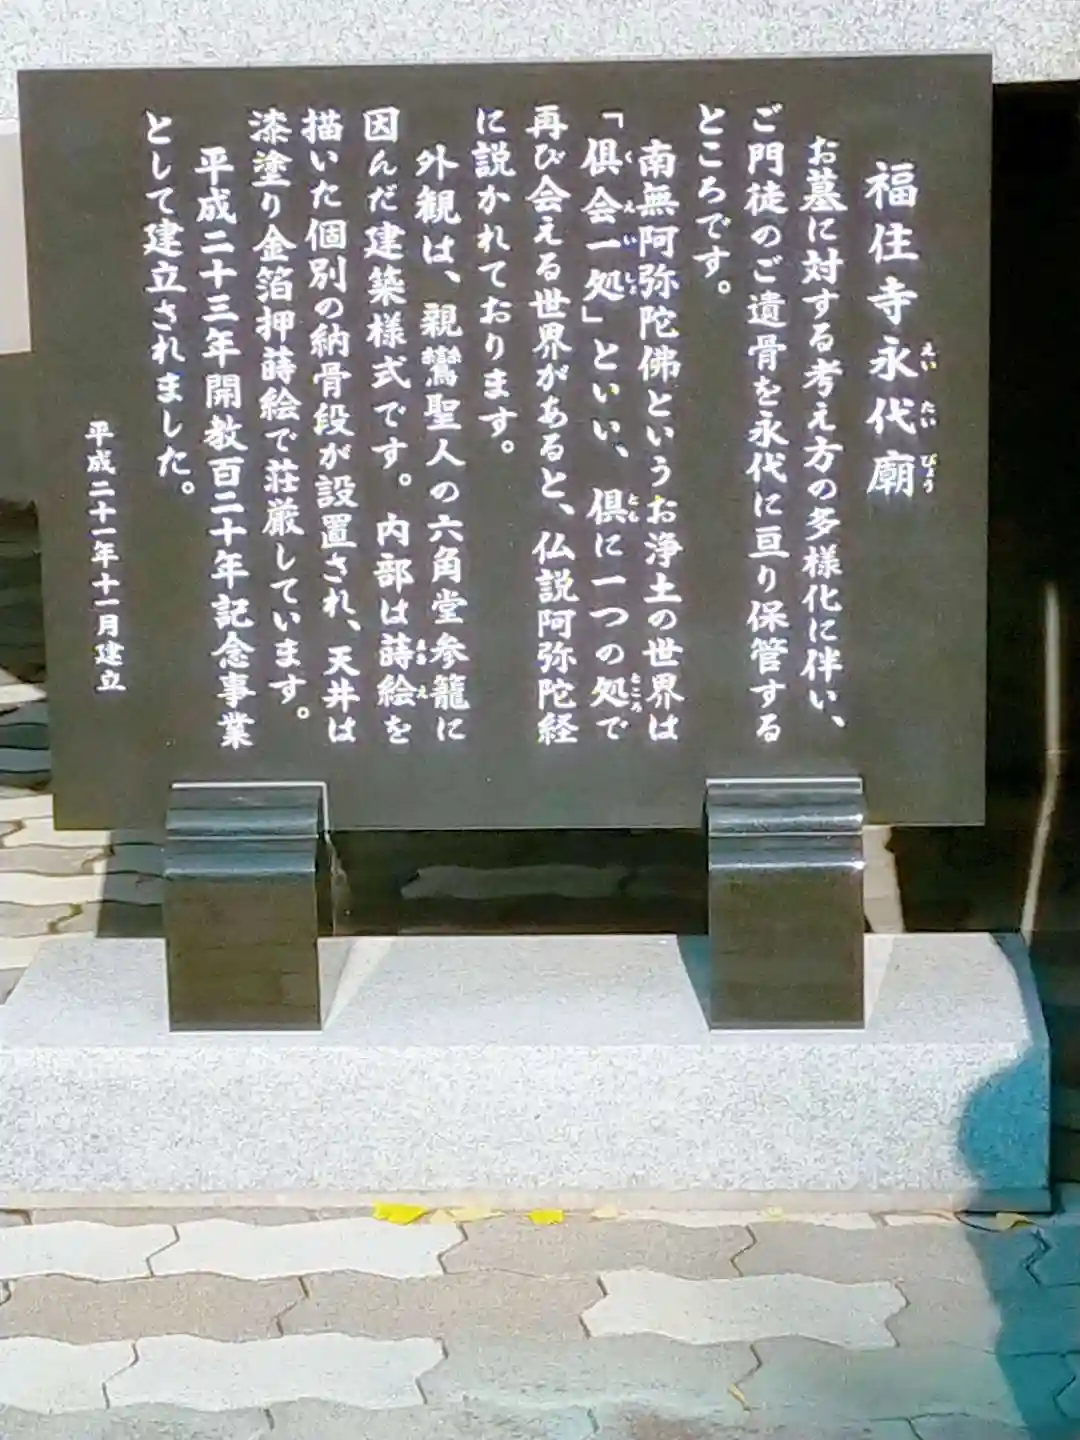 福住寺永代廟
えいたいびょう
お墓に対する考え方の多様化に伴い、
ご門徒のご遺骨を永代に亘り保管する
ところです。
南無阿弥陀佛というお浄土の世界は
「倶会一処」といい、倶に一つの処で
くえいしょ
とも
ところ
再び会える世界があると、仏説阿弥陀経
に説かれております。
外観は、親鸞聖人の六角堂参籠に
因んだ建築様式です。内部は蒔絵を
まきえ
描いた個別の納骨段が設置され、天井は
漆塗り金箔押蒔絵で荘厳しています。
平成二十三年開教百二十年記念事業
として建立されました。
平成二十一年十一月建立